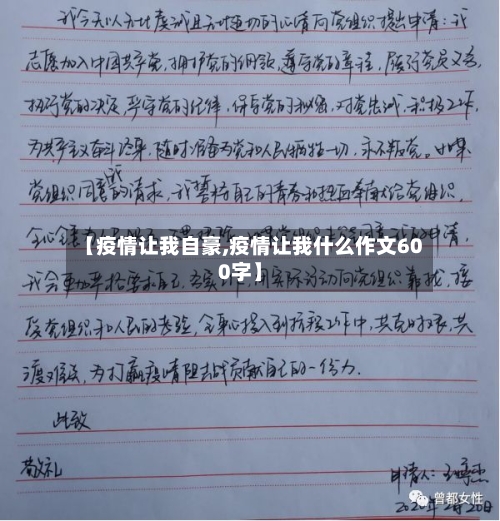 我今天以无比虔诚且无比迫切的心情向党组织提出申请:我
志愿加入中国共产党,拥护党的纲领,遵守党的章程,履行党员义务,
执行党的决定,严守党的纪律,保守党的秘密,对党忠诚,积极工作,
为共产主义奋斗终身,随时准备为党和人民牺牲一切,永不叛党。如果
党组织同意我的请求,我誓将自己的青春和热血奉献给党组织,
全心全意为人民
【疫情让我自豪,疫情让我什么作文60
0字】
我会更加严格要求自己,实际行动向党组织靠拢,接
受党组织和人民的考验,全身心投入到抗疫工作中,共克时艰,共
渡难关,为打赢疫情阻击战贡献自己的一份力。
此致
敬礼
申请人:
2020年2月20日
曾都女性